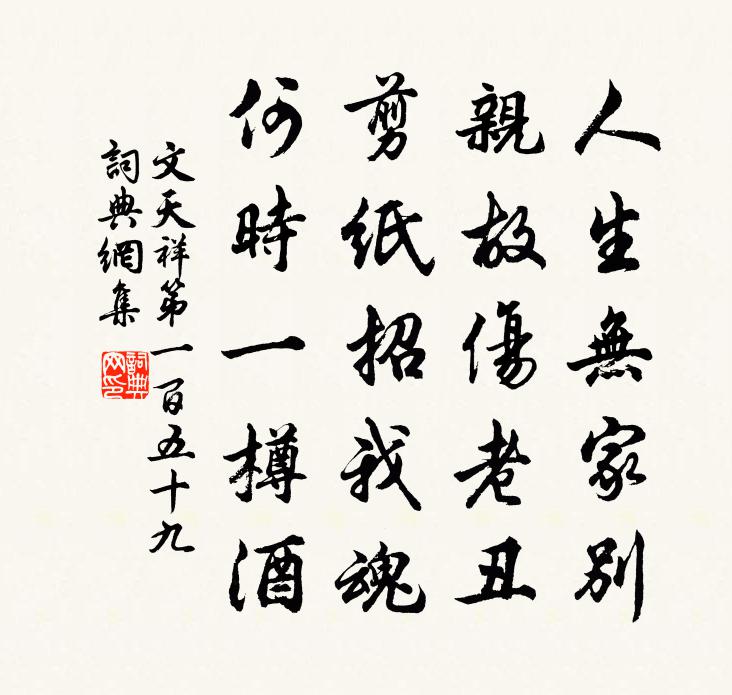 人生無家別
親故傷老丑
剪紙招我魂
何時一樽酒
文天祥第一百五十九
詞典網集
詞典網印